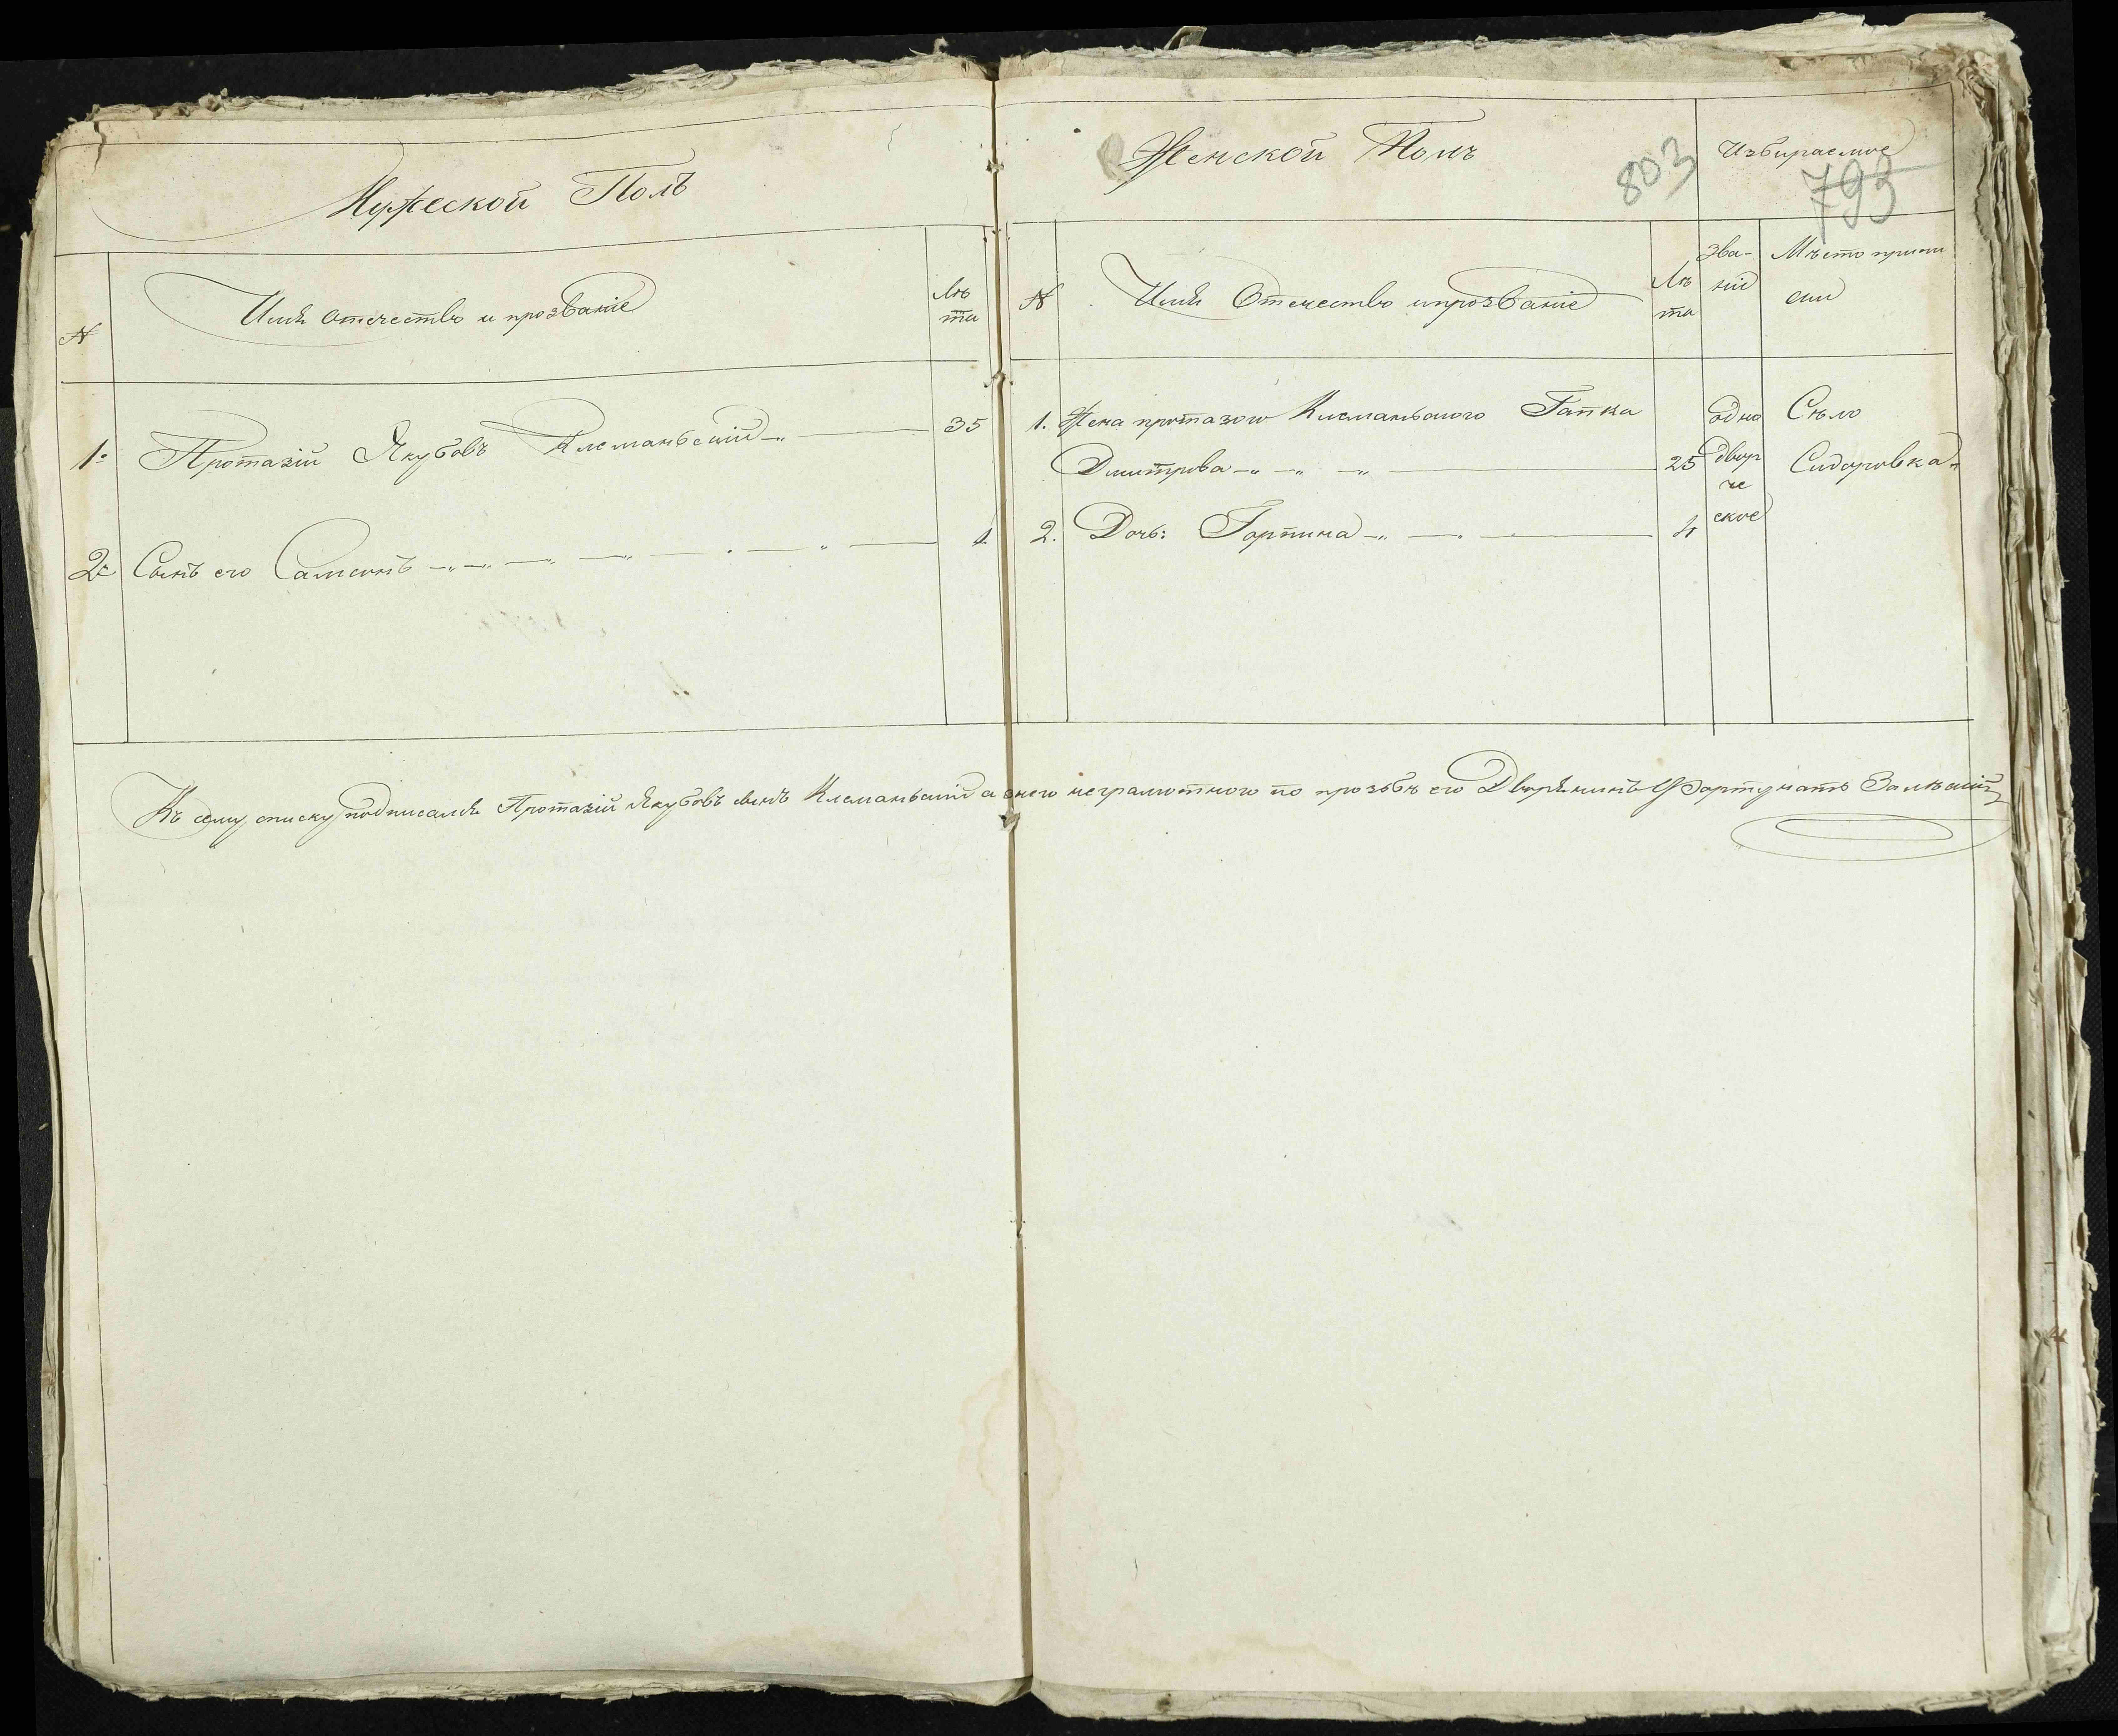 Мужеской Полъ
№
Имя отечество и прозваніе
Лѣ
та
1.
Протазій Якубовъ Клеманьскій
35
2.
Сынъ его Самсонъ
1.
Женской Полъ
803
Избираемое
793
№
Имя Отечество и прозваніе
Лѣ
та
Зва-
ніе
Мѣсто припи
ски
1. Жена протазого Клеманьского Гапка
Дмитрова
25
2. Дочь: Горпина
4
одно
двор
че
ское
Сѣло
Сидоровка
Къ сему списку подписался Протазій Якубовъ сынъ Клеманьскій а за него неграмотного по прозьбѣ его Дворянинъ Фортунатъ